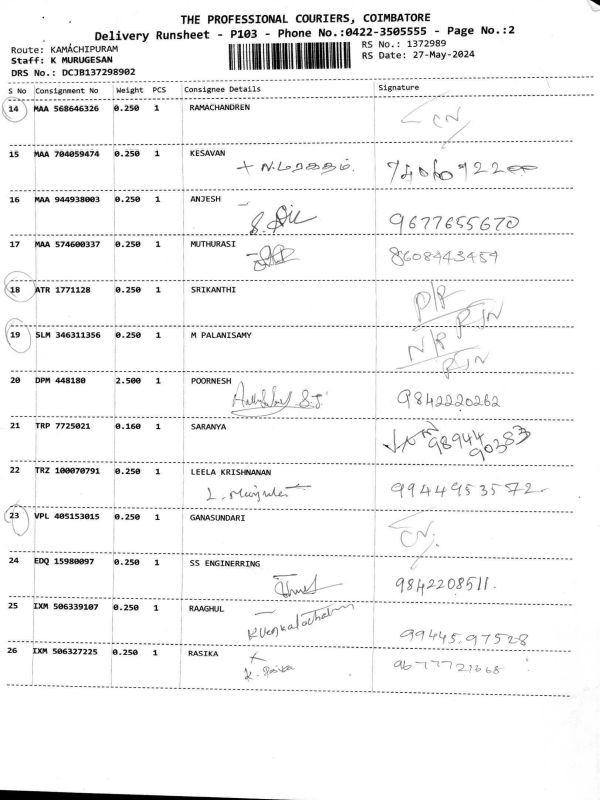 THE PROFESSIONAL COURIERS, COIMBATORE
Delivery Runsheet - P103 - Phone No.:0422-3505555 - Page No.:2
Route: KAMACHIPURAM
RS No.: 1372989
Staff: K MURUGESAN
RS Date: 27-May-2024
DRS No.: DCJB137298902
S No Consignment No Weight PCS Consignee Details Signature
14 MAA 568646326 0.250 1 RAMACHANDREN
CN
15 MAA 704059474 0.250 1 KESAVAN
16 MAA 944938003 0.250 1 ANJESH
9677655670
17 MAA 574600337 0.250 1 MUTHURASI
8608443454
18 ATR 1771128 0.250 1 SRIKANTHI
19 SLM 346311356 0.250 1 M PALANISAMY
20 DPM 448180 2.500 1 POORNESH
9842220262
21 TRP 7725021 0.160 1 SARANYA
98944
90383
22 TRZ 100070791 0.250 1 LEELA KRISHNANAN
9944953572
23 VPL 405153015 0.250 1 GANASUNDARI
CN
24 EDQ 15980097 0.250 1 SS ENGINERRING
9842208511
25 IXM 506339107 0.250 1 RAAGHUL
99445 97528
26 IXM 506327225 0.250 1 RASIKA